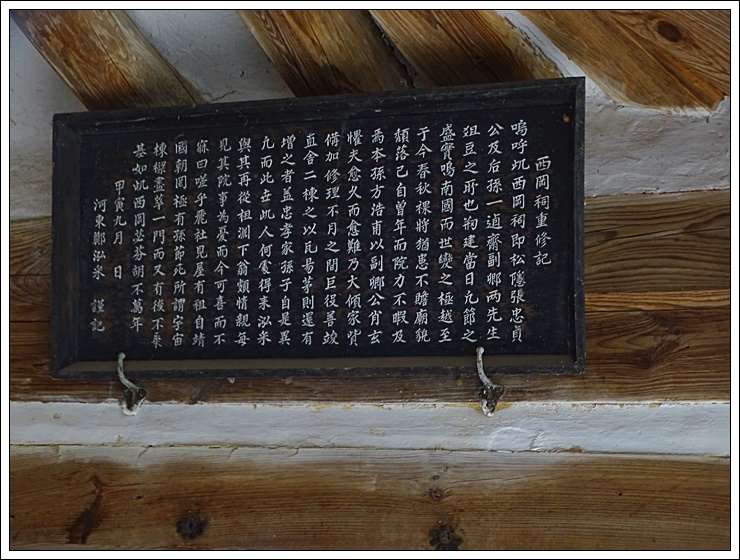 西岡祠重修記
嗚呼此西岡祠即松隱張忠貞
公及后孫一逌齋副卿兩先生
俎豆之所也刱建當日凡節之
盛實鳴南國而世變之極越至
于今春秋裸將猶患不贍廟貌
頹落已自曾年而院力不暇及
焉本孫方浩甫以副卿公肖玄
懼夫愈久而愈難乃大傾家貲
備加修理不月之間巨役善竣
直舍二棟之以瓦易茅則還有
增之者蓋忠孝家孫子自是異
凡而此世此人何處得來泓米
與其再從祖渊下翁頗情親每
見其院事為憂而今可喜而不
寐曰嗟乎麗社見屋有祖自靖
國朝罔極有孫節死所謂宇宙
棟樑靈萃一門而又有後不乘
甚如此西岡苾芬胡不萬年
甲寅九月 日
河東鄭泓米 謹記